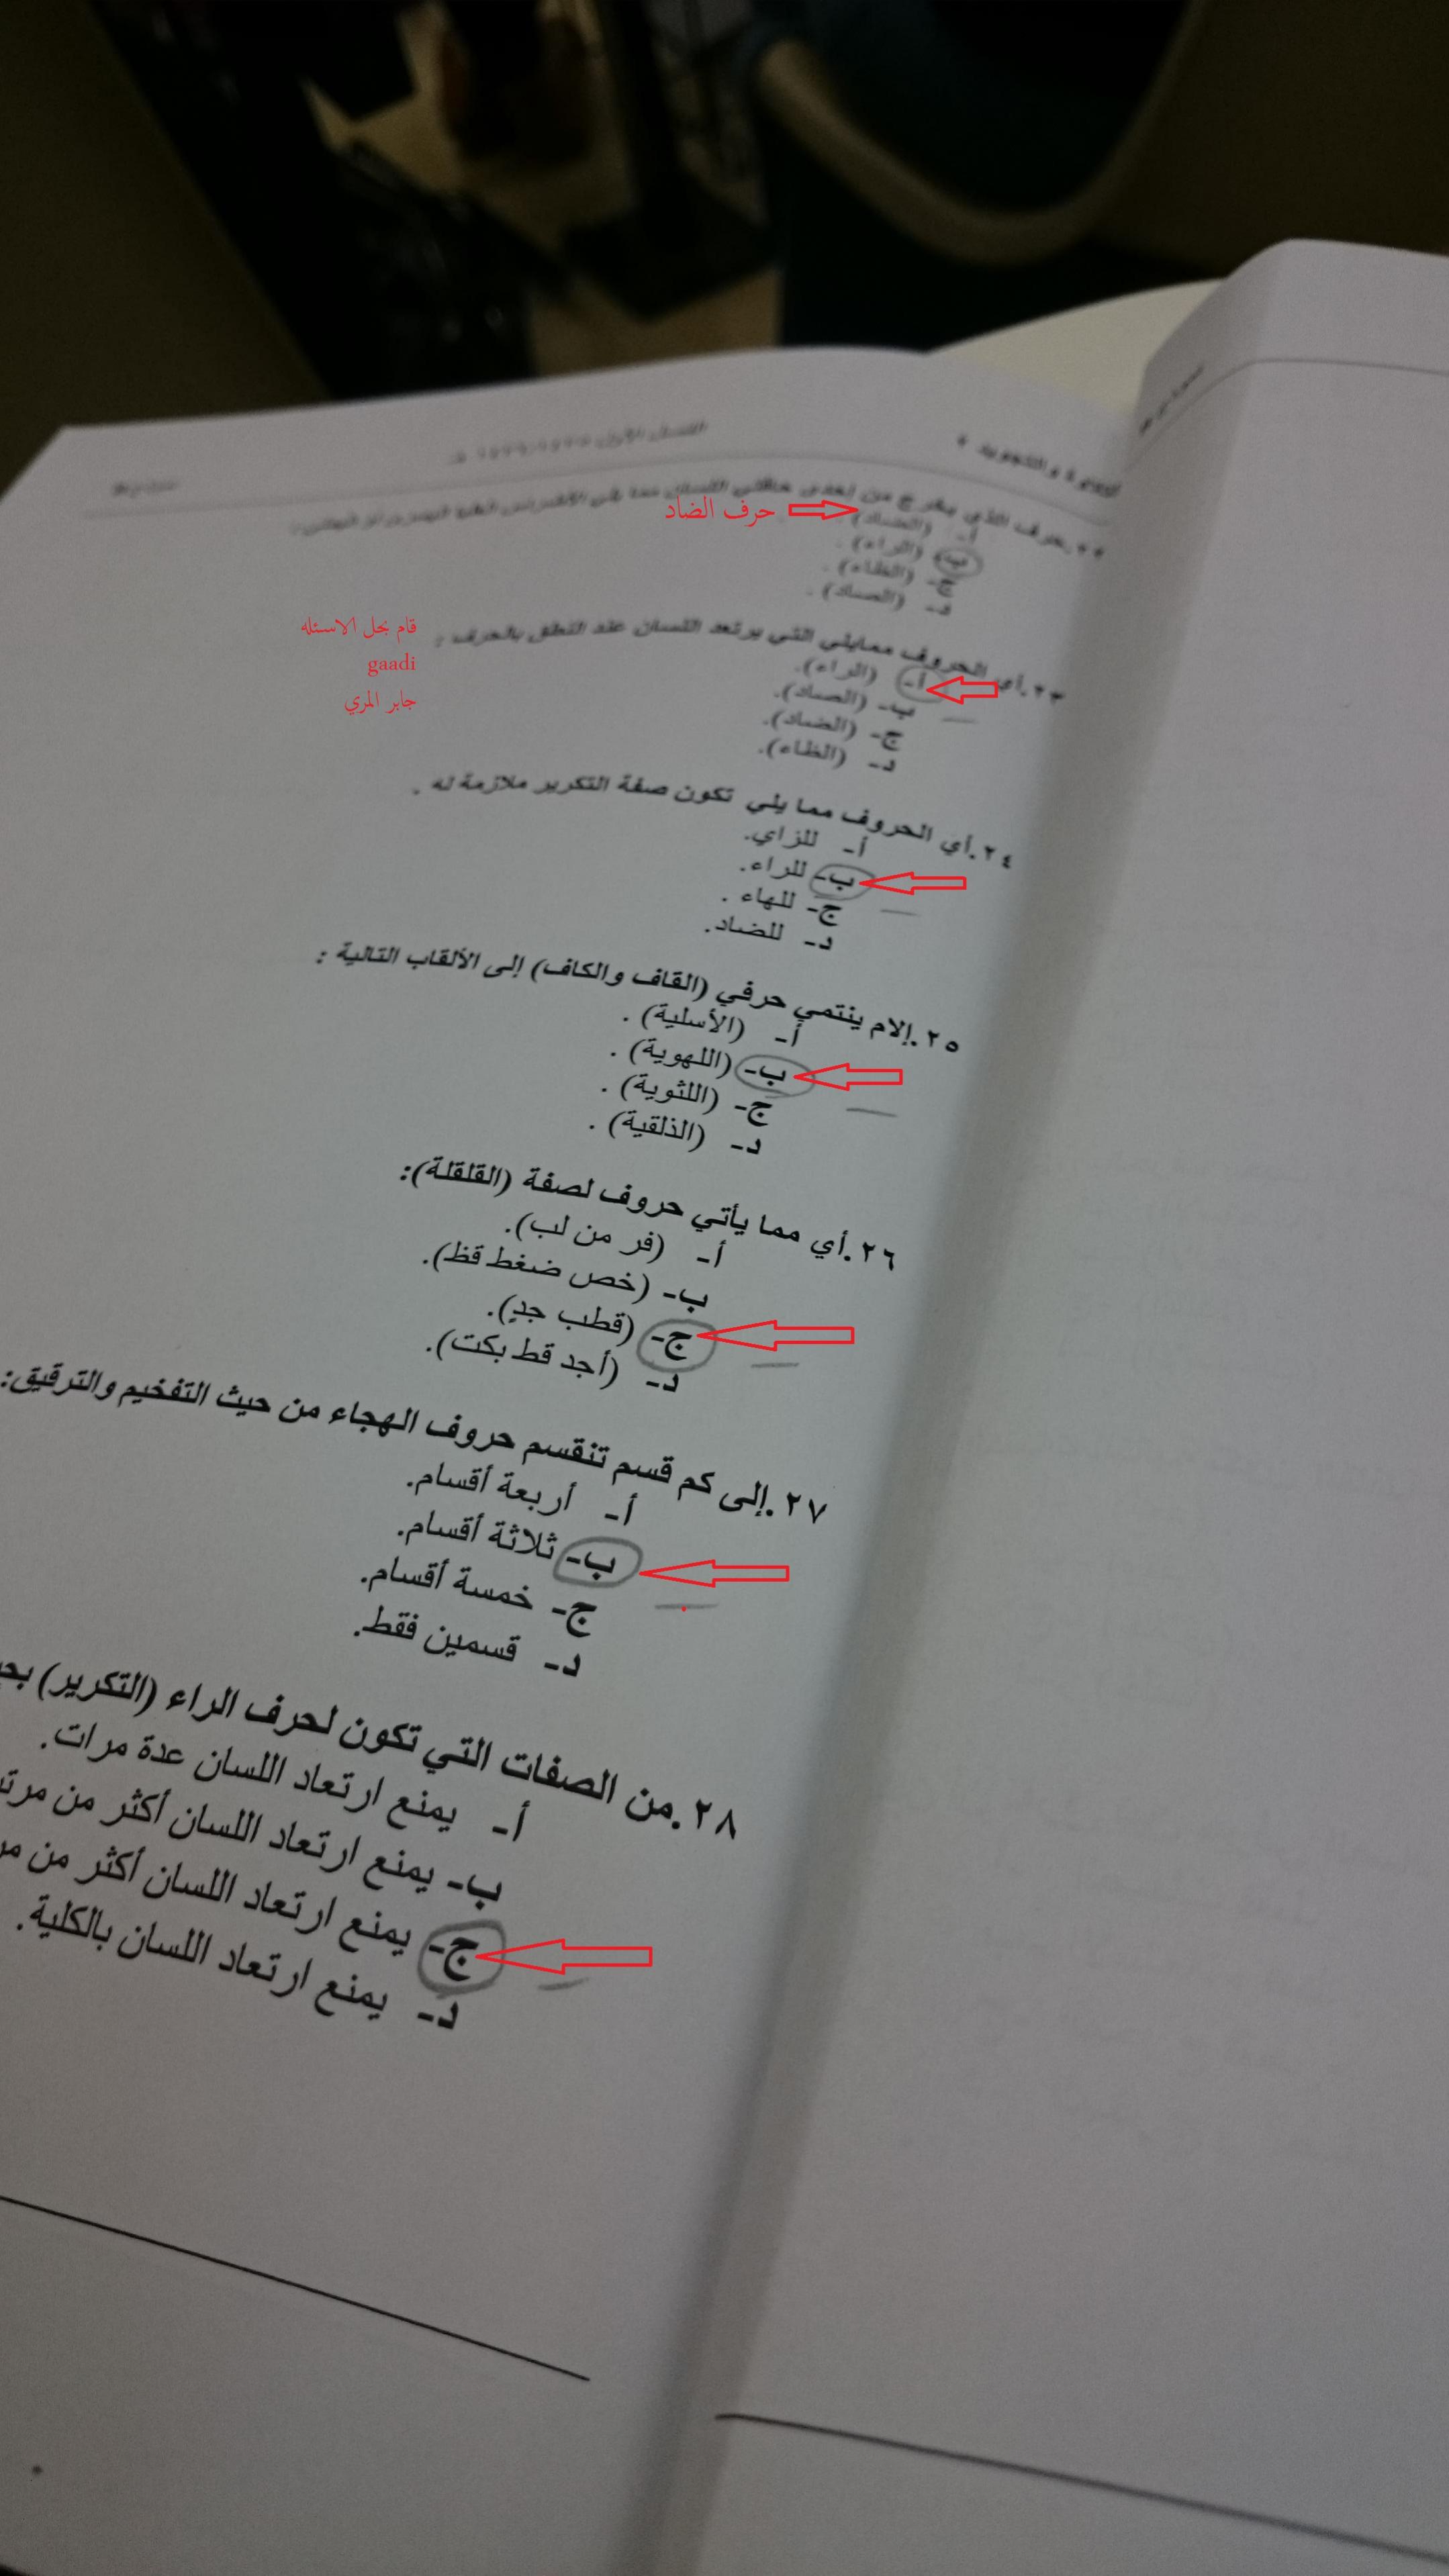 التلاوة والتجويد ٤
الفصل الأول
٢٢. حرف الذي يخرج من إحدى حافتي اللسان مما يلي الأضراس العليا
أ- (الضاد)
حرف الضاد
ب- (الراء) .
ج- (الظاء) .
د- (الصاد) .
٢٣. أي الحروف ممايلي التي يرتعد اللسان عند النطق بالحرف :
أ- (الراء).
ب- (الصاد).
ج- (الضاد).
د- (الظاء).
قام بحل الاسئله
gaadi
جابر المري
٢٤. أي الحروف مما يلي تكون صفة التكرير ملازمة له .
أ- للزاي.
ب- للراء.
ج- للهاء .
د- للضاد.
٢٥. إلام ينتمي حرفي (القاف والكاف) إلى الألقاب التالية :
أ- (الأسلية) .
ب- (اللهوية) .
ج- (اللثوية) .
د- (الذلقية) .
٢٦. أي مما يأتي حروف لصفة (القلقلة):
أ- (فر من لب).
ب- (خص ضغط قظ).
ج- (قطب جدٍ).
د- (أجد قط بكت).
٢٧. إلى كم قسم تنقسم حروف الهجاء من حيث التفخيم والترقيق:
أ- أربعة أقسام.
ب- ثلاثة أقسام.
ج- خمسة أقسام.
د- قسمين فقط.
٢٨. من الصفات التي تكون لحرف الراء (التكرير)
أ- يمنع ارتعاد اللسان عدة مرات.
ب- يمنع ارتعاد اللسان أكثر من
ج- يمنع ارتعاد اللسان أكثر من
د- يمنع ارتعاد اللسان بالكلية.